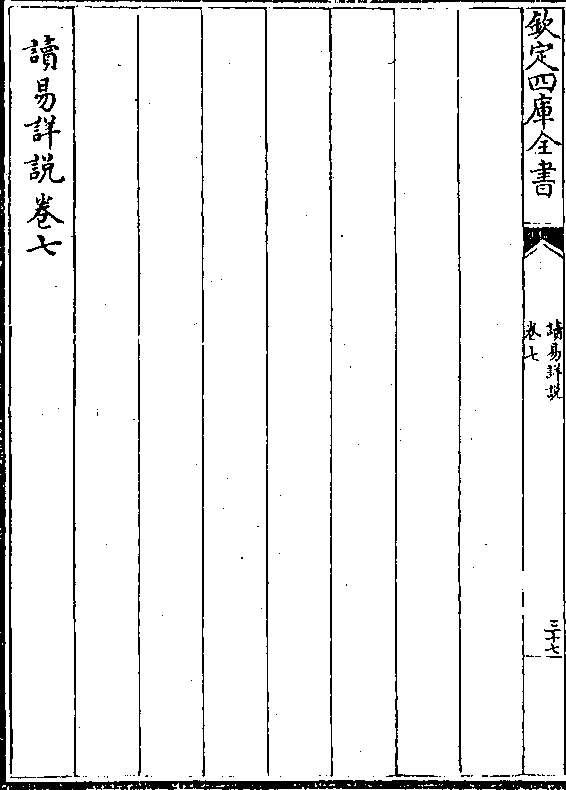 欽定四庫全書
讀易詳説
卷七
三十七
讀易詳説卷七